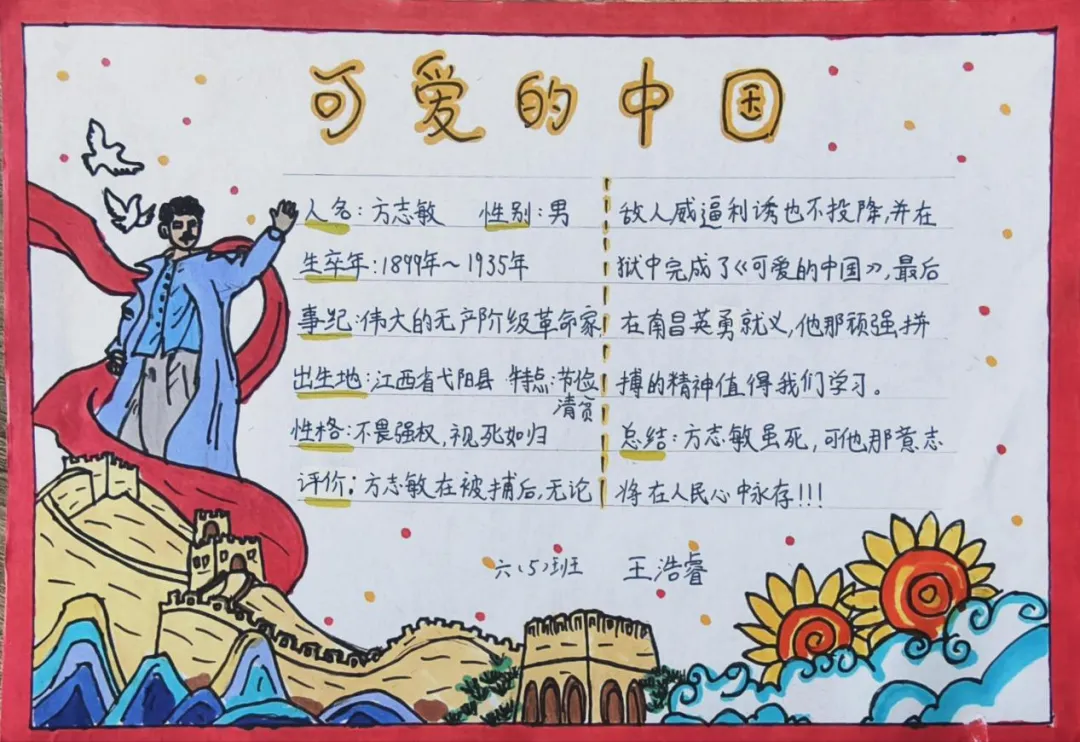 可爱的中国
人名：方志敏 性别：男
生卒年：1899年～1935年
事纪：伟大的无产阶级革命家
出生地：江西省弋阳县 特点：节俭
清贫
性格：不畏强权，视死如归
评价：方志敏在被捕后，无论
敌人威逼利诱也不投降，并在
狱中完成了《可爱的中国》，最后
在南昌英勇就义，他那顽强，拼
搏的精神值得我们学习。
总结：方志敏虽死，可他那意志
将在人民心中永存！！！
六（5）班 王浩睿